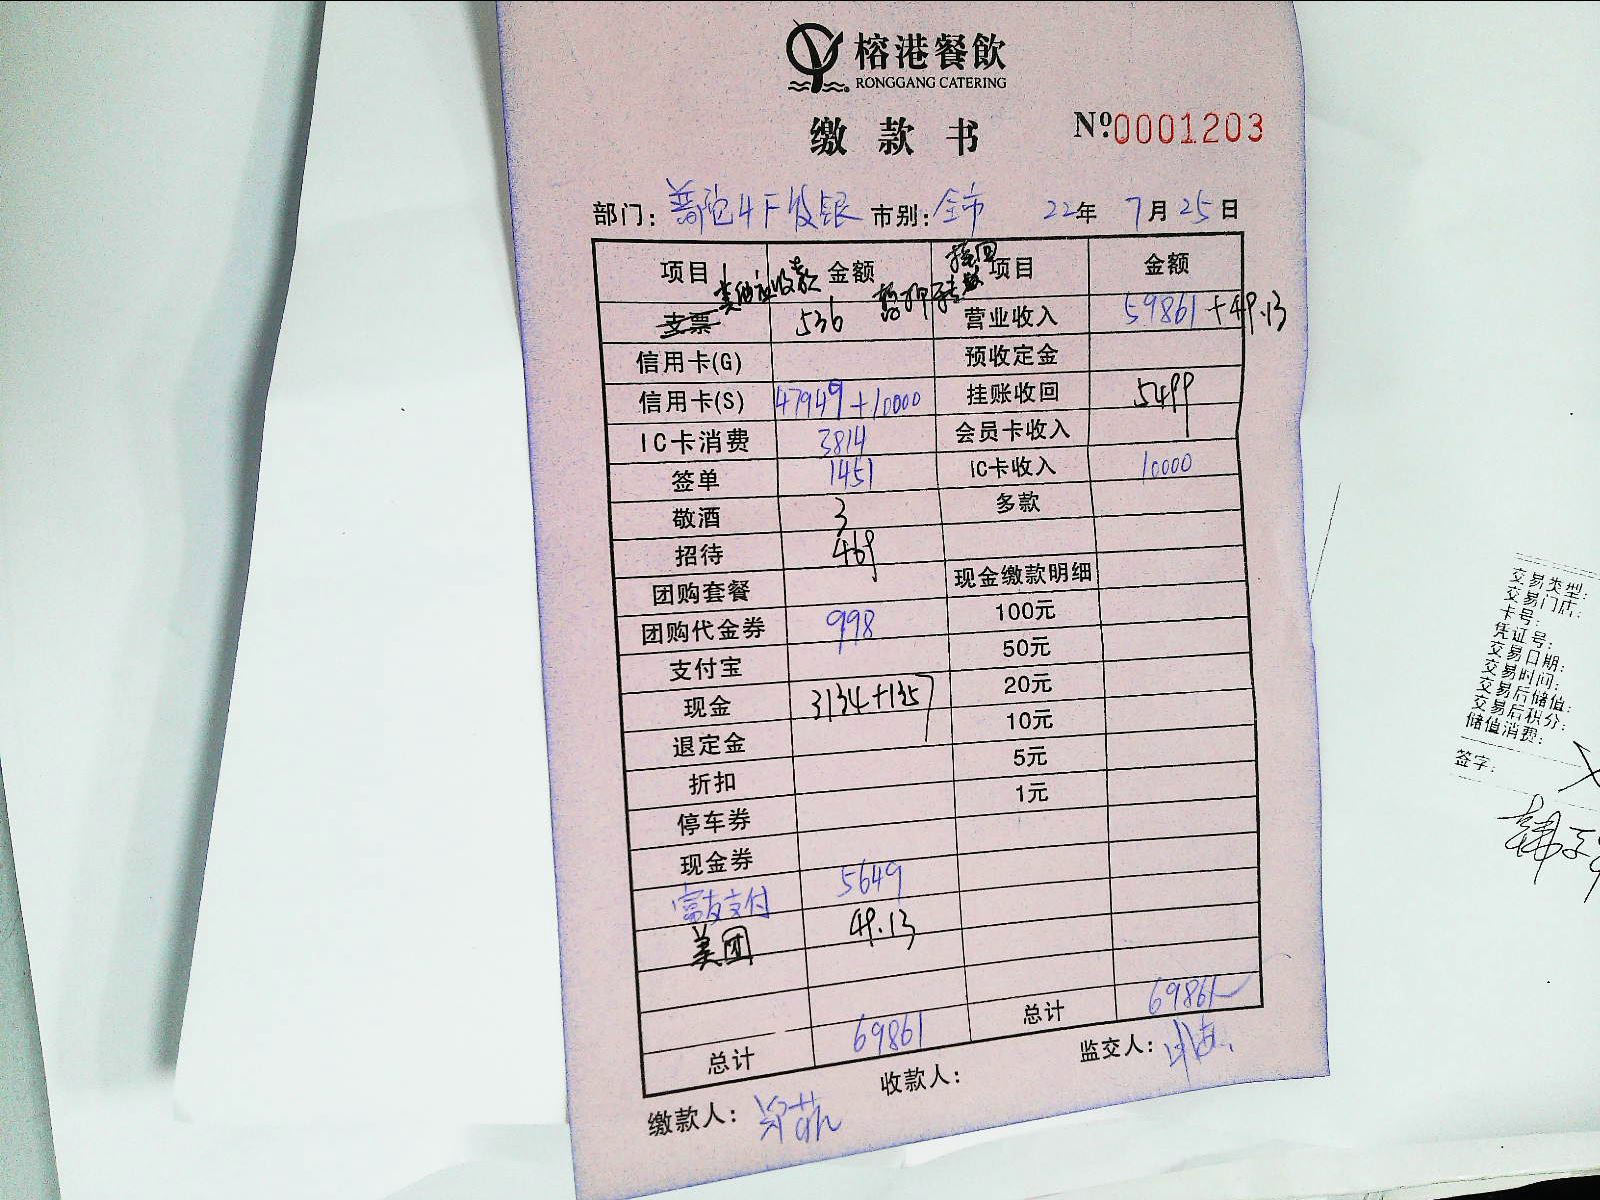 榕港餐飲
RONGGANG CATERING
缴款书 №0001203
部门: 4F 市别: 全市 22年 7月 25日
项目 金额 项目 金额
支票 536 营业收入 59861+49.13
信用卡(G) 预收定金
信用卡(S) 47949+10000 挂账收回 5499
IC卡消费 3814 会员卡收入
签单 1451 IC卡收入 10000
敬酒 3 多款
招待 469
团购套餐 现金缴款明细
团购代金券 998 100元
支付宝 50元
现金 3134+1357 20元
退定金 10元
折扣 5元
停车券 1元
现金券
富友支付 5649
美团 49.13
总计 69861 总计 69861
缴款人: 收款人: 监交人:
交易类型:
交易门店:
卡号:
凭证号:
交易日期:
交易时间:
交易后储值:
交易后积分:
储值消费:
签字: